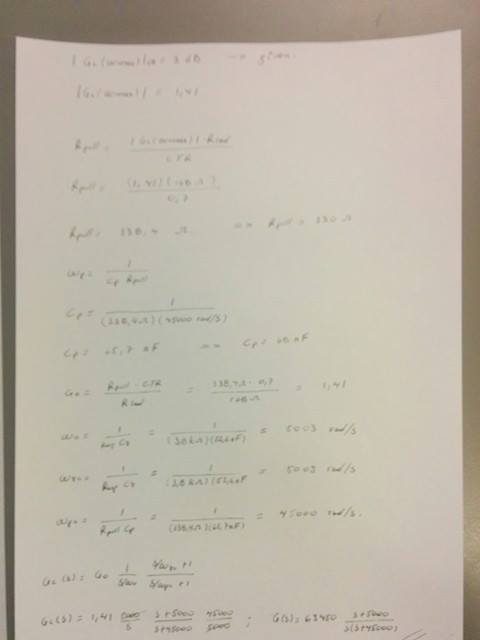 |Gc(ωcmax)|dB = 3 dB → given.
|Gc(ωcmax)| = 1,41
Rpull = |Gc(ωcmax)| · Rled / CTR
Rpull = (1,41)(168 Ω) / 0,7
Rpull = 338,4 Ω => Rpull = 330 Ω
ωp = 1 / Cp Rpull
Cp = 1 / (338,4Ω)(45000 rad/s)
Cp = 65,7 nF => Cp = 68 nF
Go = Rpull · CTR / Rled = 338,4Ω · 0,7 / 168Ω = 1,41
= 1 / = 1 / (3,8kΩ)(52,6nF) = 5003 rad/s
= 1 / = 1 / (3,8kΩ)(52,6nF) = 5003 rad/s
= 1 / Rpull Cp = 1 / (338,4Ω)(65,7nF) = 45000 rad/s.
Gc(s) = Go 1 / s/ωo s/ωz +1 / s/ωp +1
Gc(s) = 1,41 5000 / s s+5000 / s+45000 45000 / 5000 ; G(s) = 63450 s+5000 / s(s+45000)